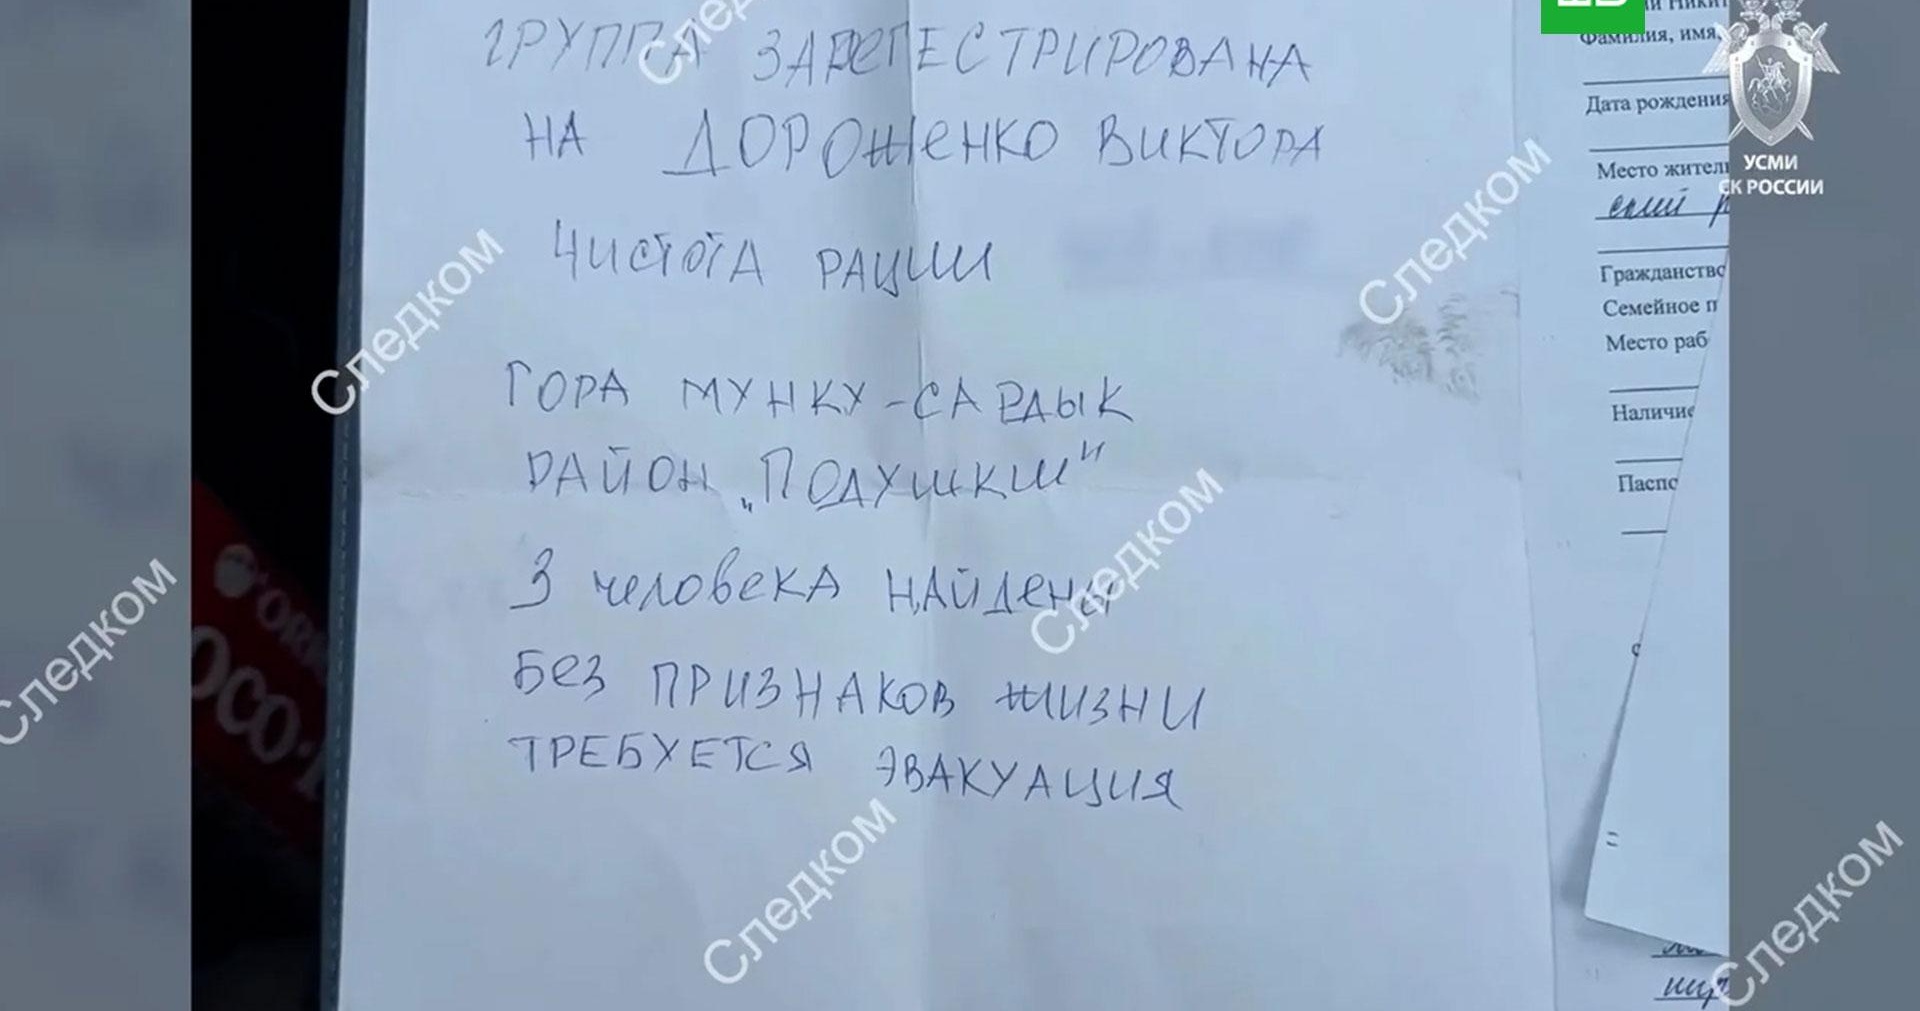 ГРУППА ЗАРЕГЕСТРИРОВАНА
НА ДОРОЖЕНКО ВИКТОРА
ЧИСТОТА РАЦИИ
ГОРА МУНКУ-САРДЫК
РАЙОН „ПОДУШКИ"
3 человека найдены
БЕЗ ПРИЗНАКОВ ЖИЗНИ
ТРЕБУЕТСЯ ЭВАКУАЦИЯ
Фамилия, имя,
Дата рождения
Место жител
Гражданство
Семейное п
Место раб
Наличие
Паспо
УСМИ
СК РОССИИ
Следком
Следком
Следком
Следком
Следком
Следком
Следком
Следком